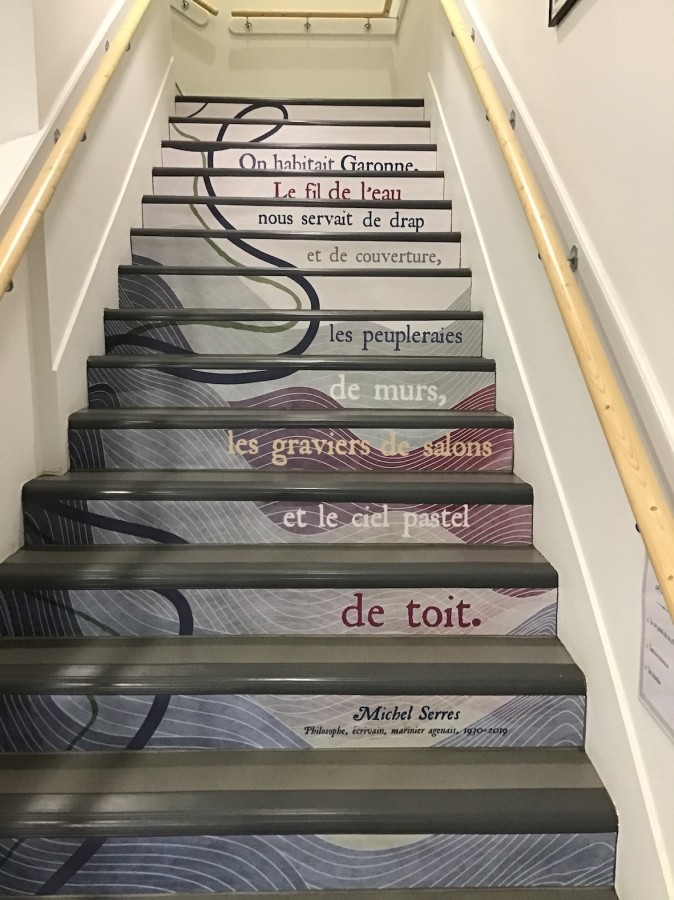 On habitait Garonne.
Le fil de l'eau
nous servait de drap
et de couverture,
les peupleraies
de murs,
les graviers de salons
et le ciel pastel
de toit.
Michel Serres
Philosophe, écrivain, marinier agenais, 1930-2019